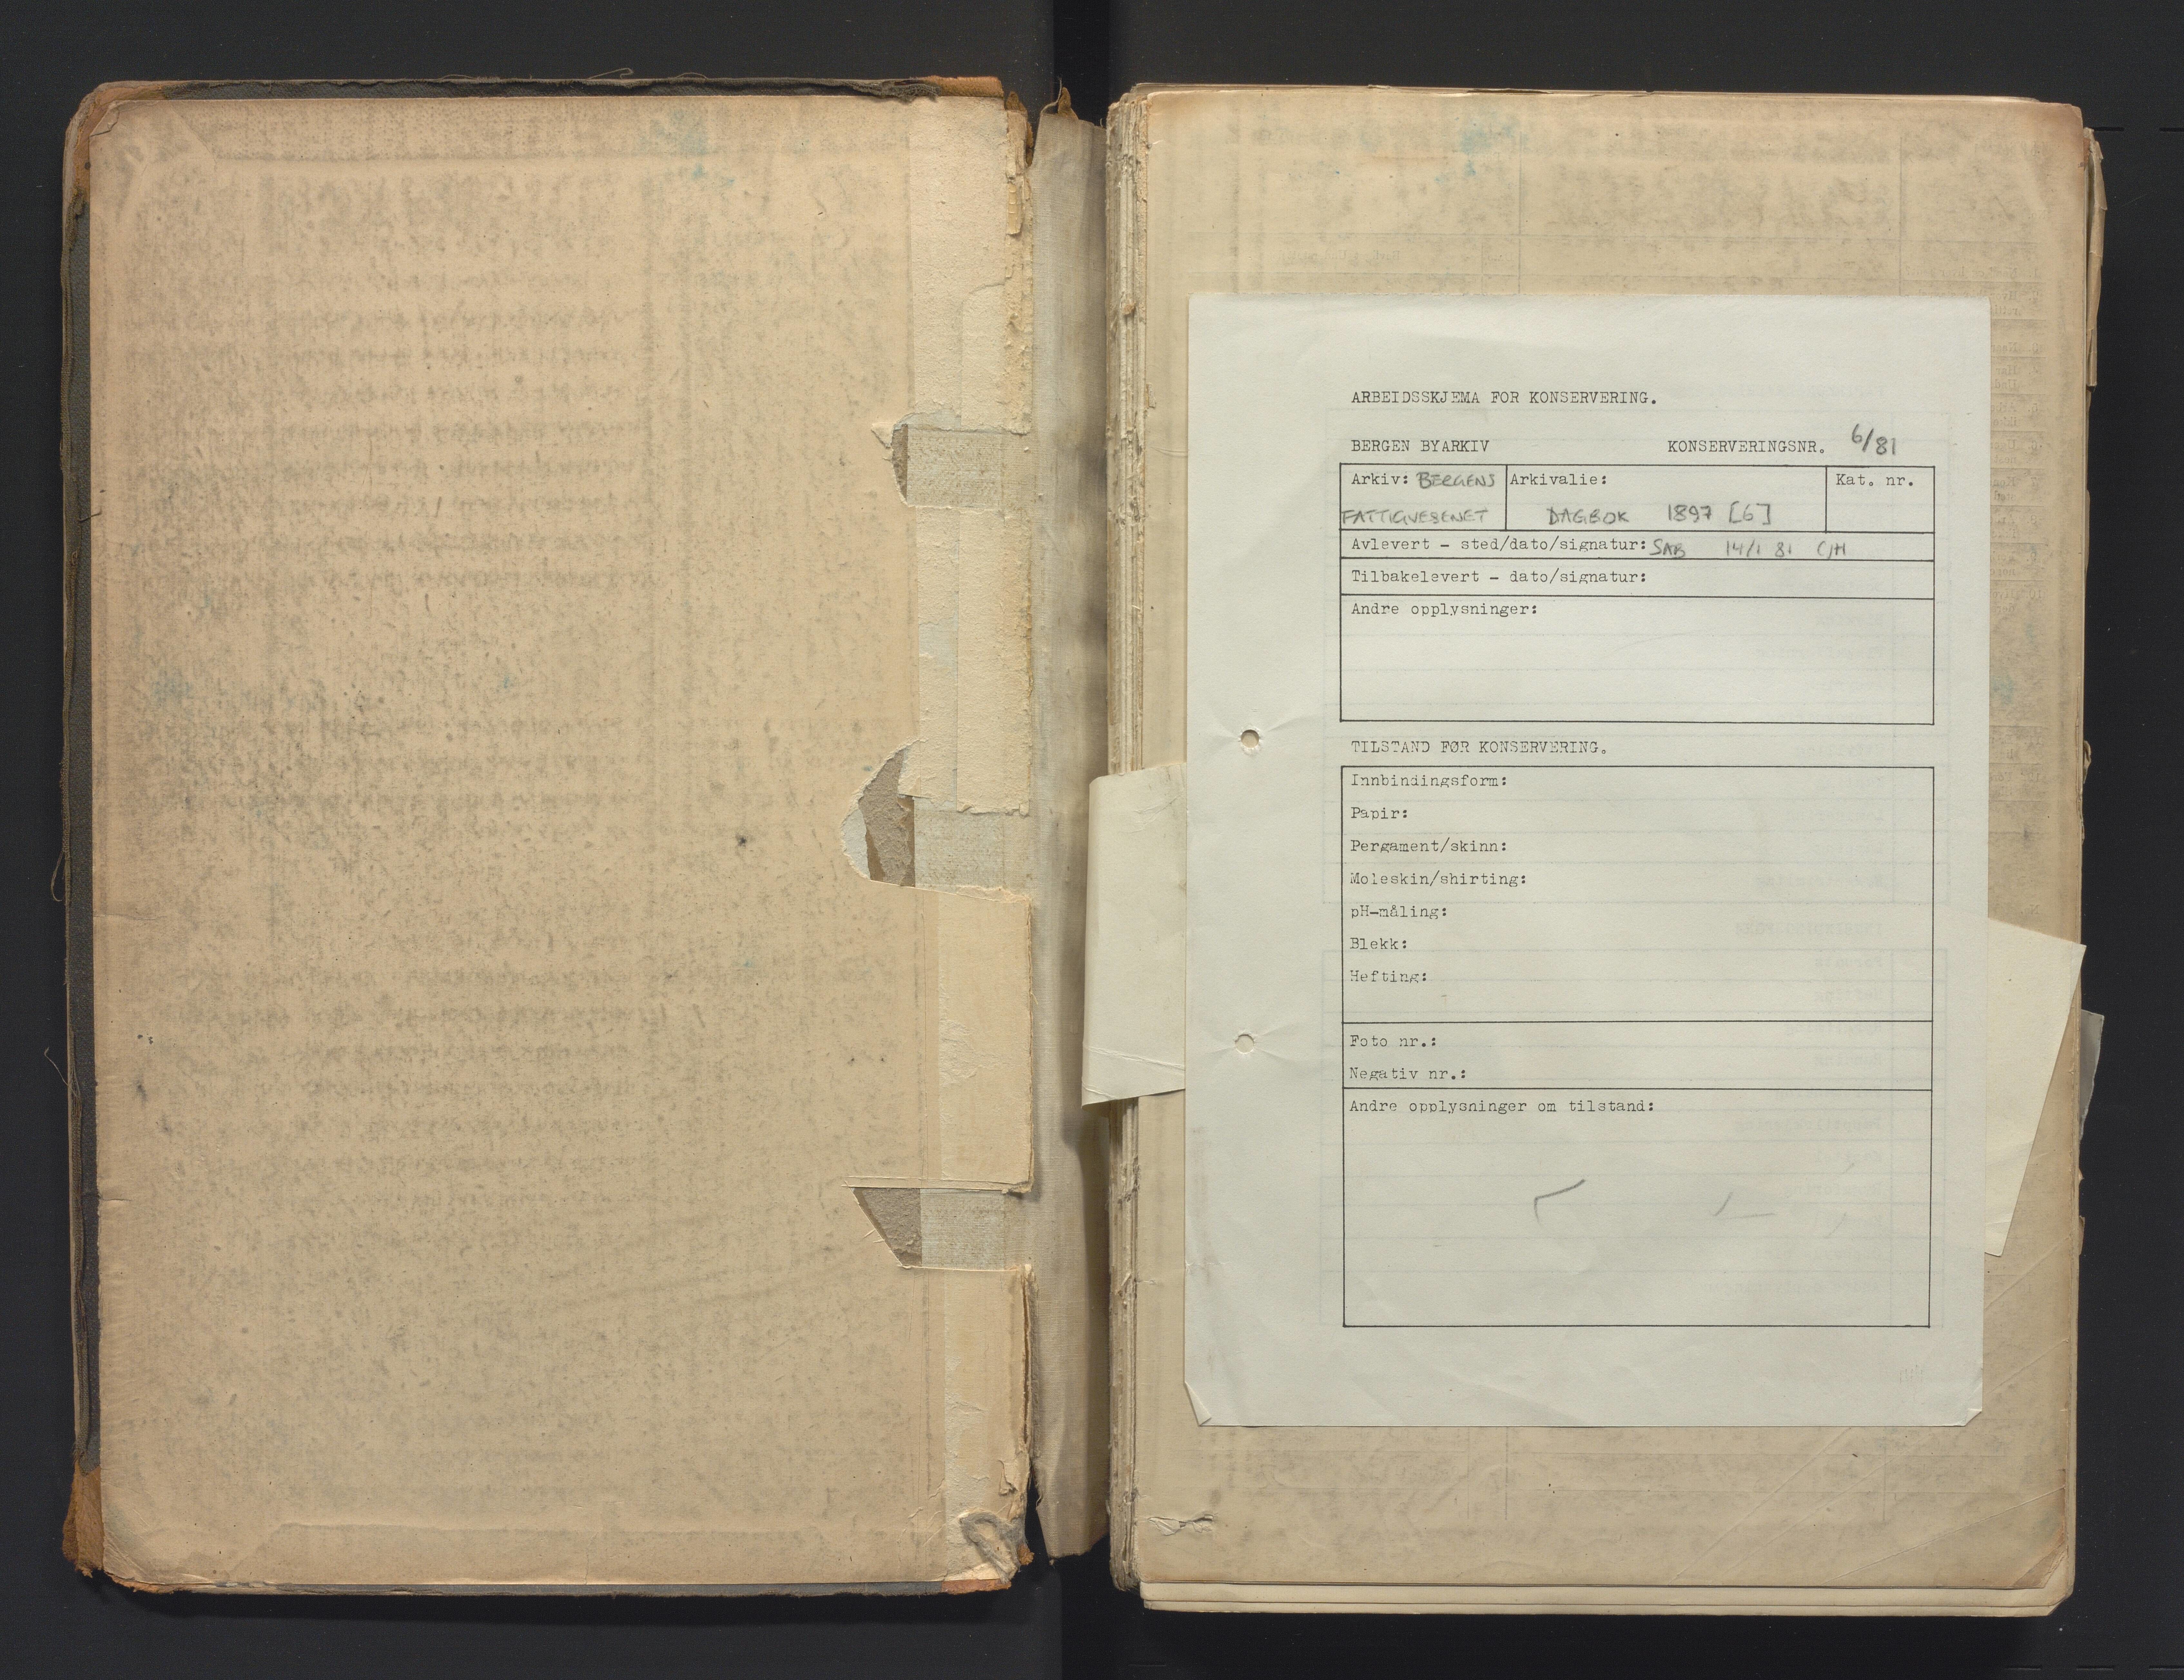 ARBEIDSSKJEMA FOR KONSERVERING.
BERGEN BYARKIV KONSERVERINGSNR. 6/81
Arkiv: BERGENS Arkivalie: Kat. nr.
FATTIGVESENET DAGBOK 1897 [6]
Avlevert - sted/dato/signatur: SAB 14/1 81
Tilbakelevert - dato/signatur:
Andre opplysninger:
TILSTAND FØR KONSERVERING.
Innbindingsform:
Papir:
Pergament/skinn:
Moleskin/shirting:
pH-måling:
Blekk:
Hefting:
Foto nr.:
Negativ nr.:
Andre opplysninger om tilstand: